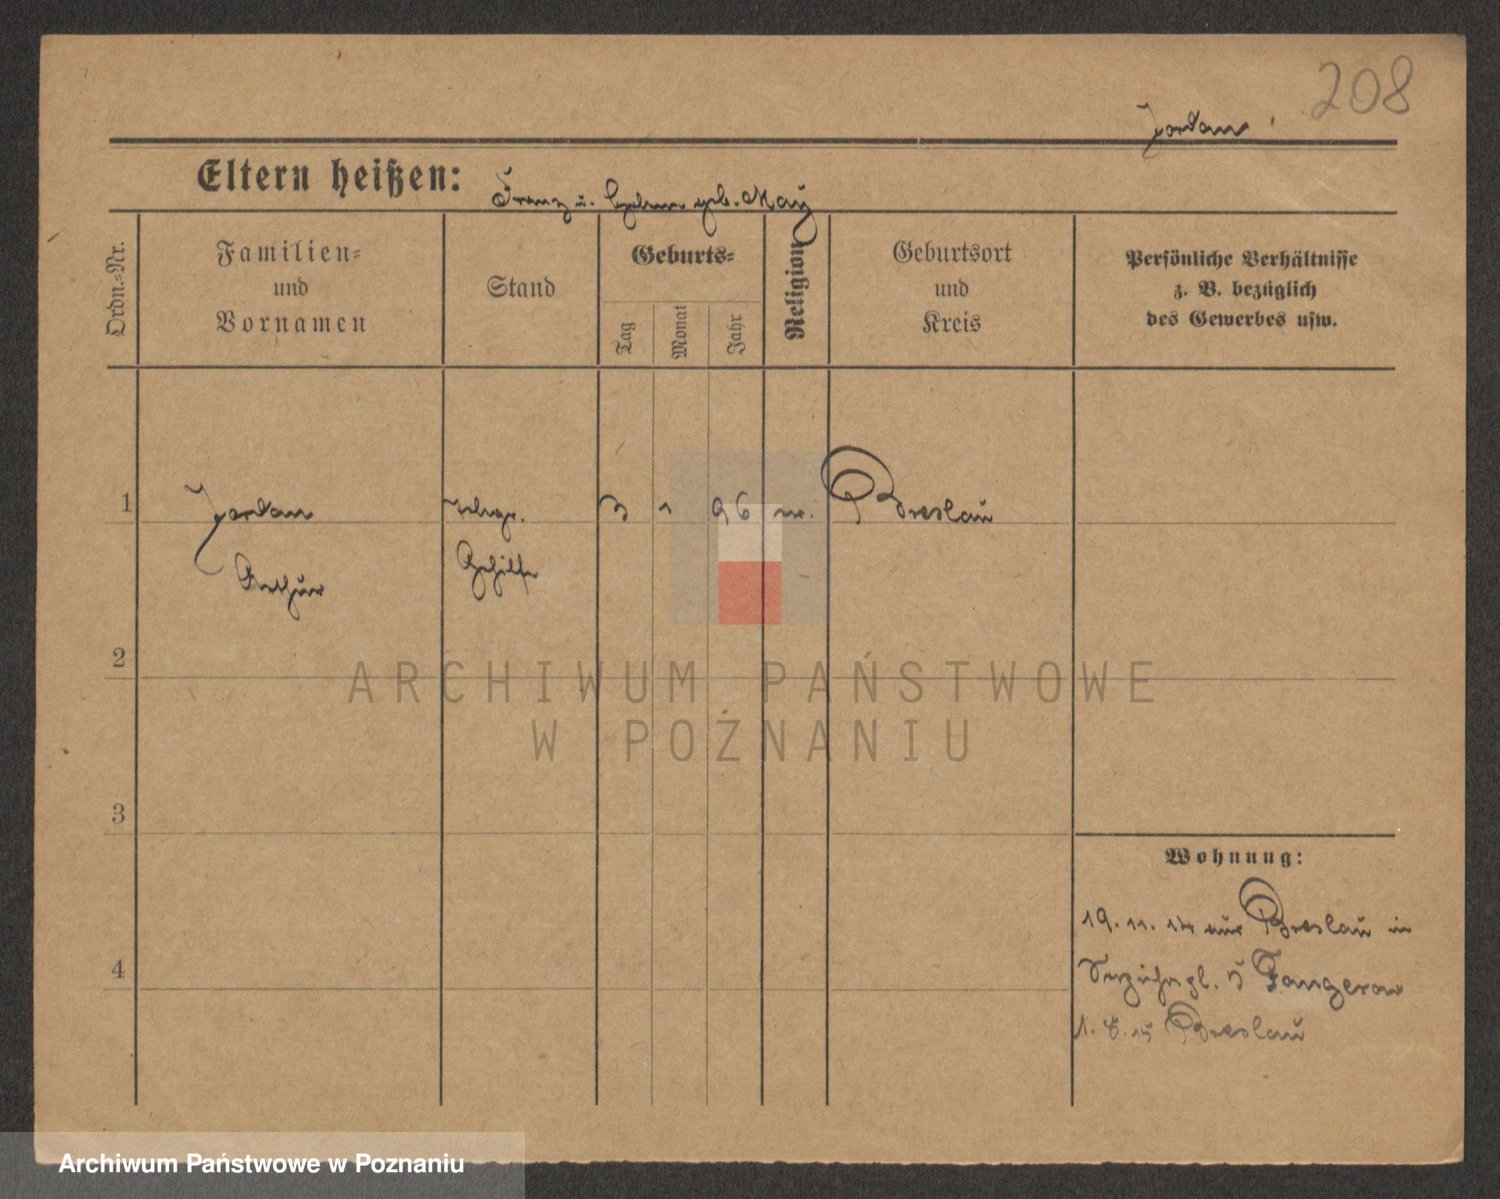 208
Jordan
Eltern heißen: Franz u. geb. May
Ordn.-Nr.
Familien-
und
Vornamen
Stand
Geburts-
Tag
Monat
Jahr
Religion
Geburtsort
und
Kreis
Persönliche Verhältnisse
z. B. bezüglich
des Gewerbes usw.
1 Jordan 3 1 96 Breslau
Arthur Gehilfe
2
3
4
Wohnung:
19. 11. 14 aus Breslau in
5 Tangerow
1. 8. 15 Breslau
ARCHIWUM PAŃSTWOWE
W POZNANIU
Archiwum Państwowe w Poznaniu